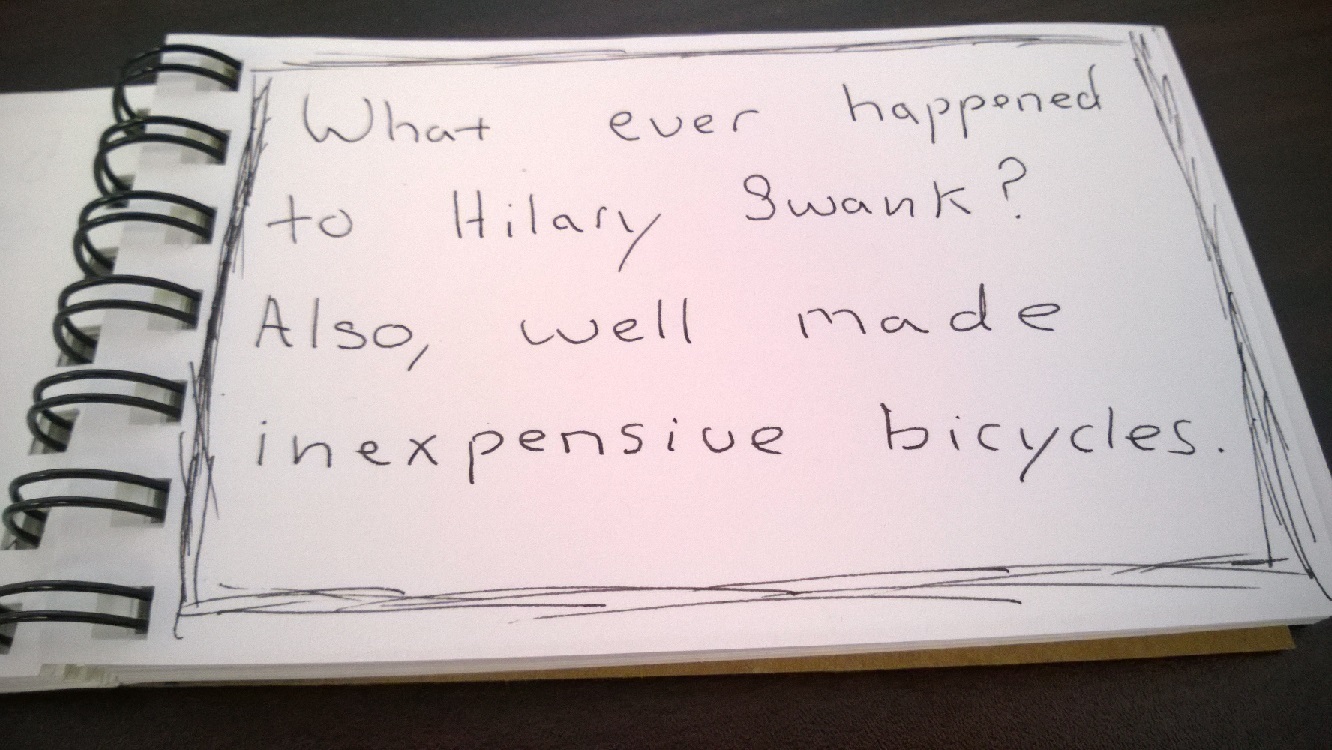 What ever happened
to Hilary Swank?
Also, well made
inexpensive bicycles.